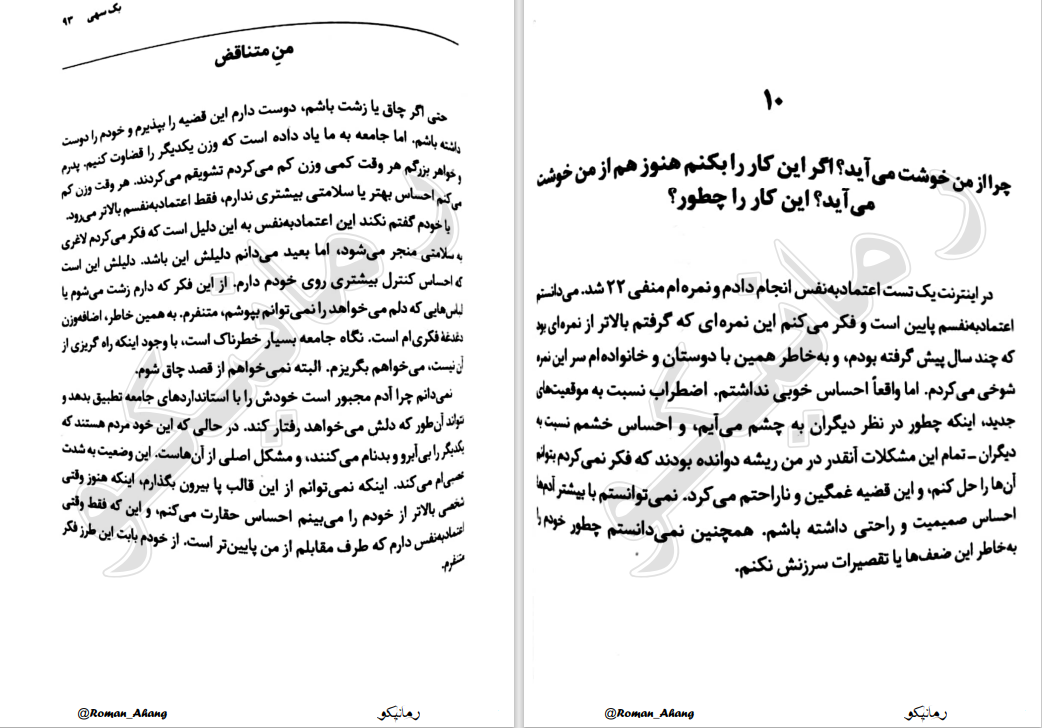 ۱۰
چرا از من خوشت می‌آید؟ اگر این کار را بکنم هنوز هم از من خوشت
می‌آید؟ این کار را چطور؟
در اینترنت یک تست اعتمادبه‌نفس انجام دادم و نمره ام منفی ۲۲ شد. می‌دانستم
اعتمادبه‌نفسم پایین است و فکر می‌کنم این نمره‌ای که گرفتم بالاتر از نمره‌ای بود
که چند سال پیش گرفته بودم، و به‌خاطر همین با دوستان و خانواده‌ام سر این نمره
شوخی می‌کردم. اما واقعاً احساس خوبی نداشتم. اضطراب نسبت به موقعیت‌های
جدید، اینکه چطور در نظر دیگران به چشم می‌آیم، و احساس خشمم نسبت به
دیگران ـ تمام این مشکلات آنقدر در من ریشه دوانده بودند که فکر نمی‌کردم بتوانم
آن‌ها را حل کنم، و این قضیه غمگین و ناراحتم می‌کرد. نمی‌توانستم با بیشتر آدم‌ها
احساس صمیمیت و راحتی داشته باشم. همچنین نمی‌دانستم چطور خودم را
به‌خاطر این ضعف‌ها یا تقصیرات سرزنش نکنم.
رمانیکو
@Roman_Ahang
رمانیکو
بک سهی ۹۳
منِ متناقض
حتی اگر چاق یا زشت باشم، دوست دارم این قضیه را بپذیرم و خودم را دوست
داشته باشم. اما جامعه به ما یاد داده است که وزن یکدیگر را قضاوت کنیم. پدرم
و خواهر بزرگم هر وقت کمی وزن کم می‌کردم تشویقم می‌کردند. هر وقت وزن کم
می‌کنم احساس بهتر یا سلامتی بیشتری ندارم، فقط اعتمادبه‌نفسم بالاتر می‌رود.
با خودم گفتم نکند این اعتمادبه‌نفس به این دلیل است که فکر می‌کردم لاغری
به سلامتی منجر می‌شود، اما بعید می‌دانم دلیلش این باشد. دلیلش این است
که احساس کنترل بیشتری روی خودم دارم. از این فکر که دارم زشت می‌شوم یا
لباس‌هایی که دلم می‌خواهد را نمی‌توانم بپوشم، متنفرم. به همین خاطر، اضافه‌وزن
دغدغهٔ فکری‌ام است. نگاه جامعه بسیار خطرناک است، با وجود اینکه راه گریزی از
آن نیست، می‌خواهم بگریزم. البته نمی‌خواهم از قصد چاق شوم.
نمی‌دانم چرا آدم مجبور است خودش را با استانداردهای جامعه تطبیق بدهد و
نتواند آن‌طور که دلش می‌خواهد رفتار کند. در حالی که این خود مردم هستند که
یکدیگر را بی‌آبرو و بدنام می‌کنند، و مشکل اصلی از آن‌هاست. این وضعیت به شدت
عصبی‌ام می‌کند. اینکه نمی‌توانم از این قالب پا بیرون بگذارم، اینکه هنوز وقتی
شخصی بالاتر از خودم را می‌بینم احساس حقارت می‌کنم، و این که فقط وقتی
اعتمادبه‌نفس دارم که طرف مقابلم از من پایین‌تر است. از خودم بابت این طرز فکر
متنفرم.
رمانیکو
@Roman_Ahang
رمانیکو